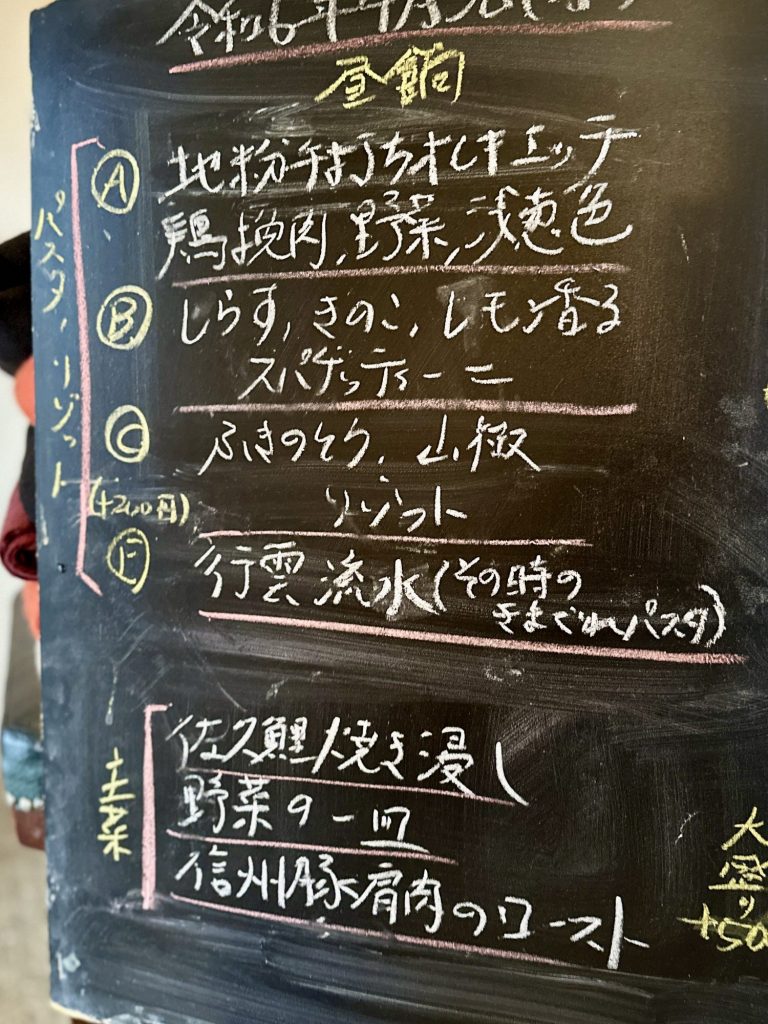 令和6年4月
昼餉
パスタ、リゾット
A 地粉手打ちオレキエッテ
鶏挽肉、野菜、浅葱色
B しらす、きのこ、レモン香る
スパゲッティーニ
C ふきのとう、山椒
(+200円) リゾット
行雲流水(その時の
きまぐれパスタ)
主菜
佐久鯉焼き浸し
野菜の一皿
信州豚肩肉のロースト
大盛り
+50